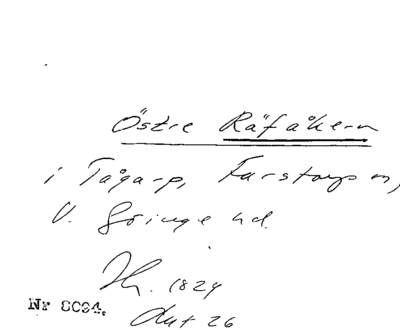 Östre Räfåkern
i Tågarp, Farstorp sn,
V. Göinge hd.
Hr. 1824
Akt 26
Nr 8094.